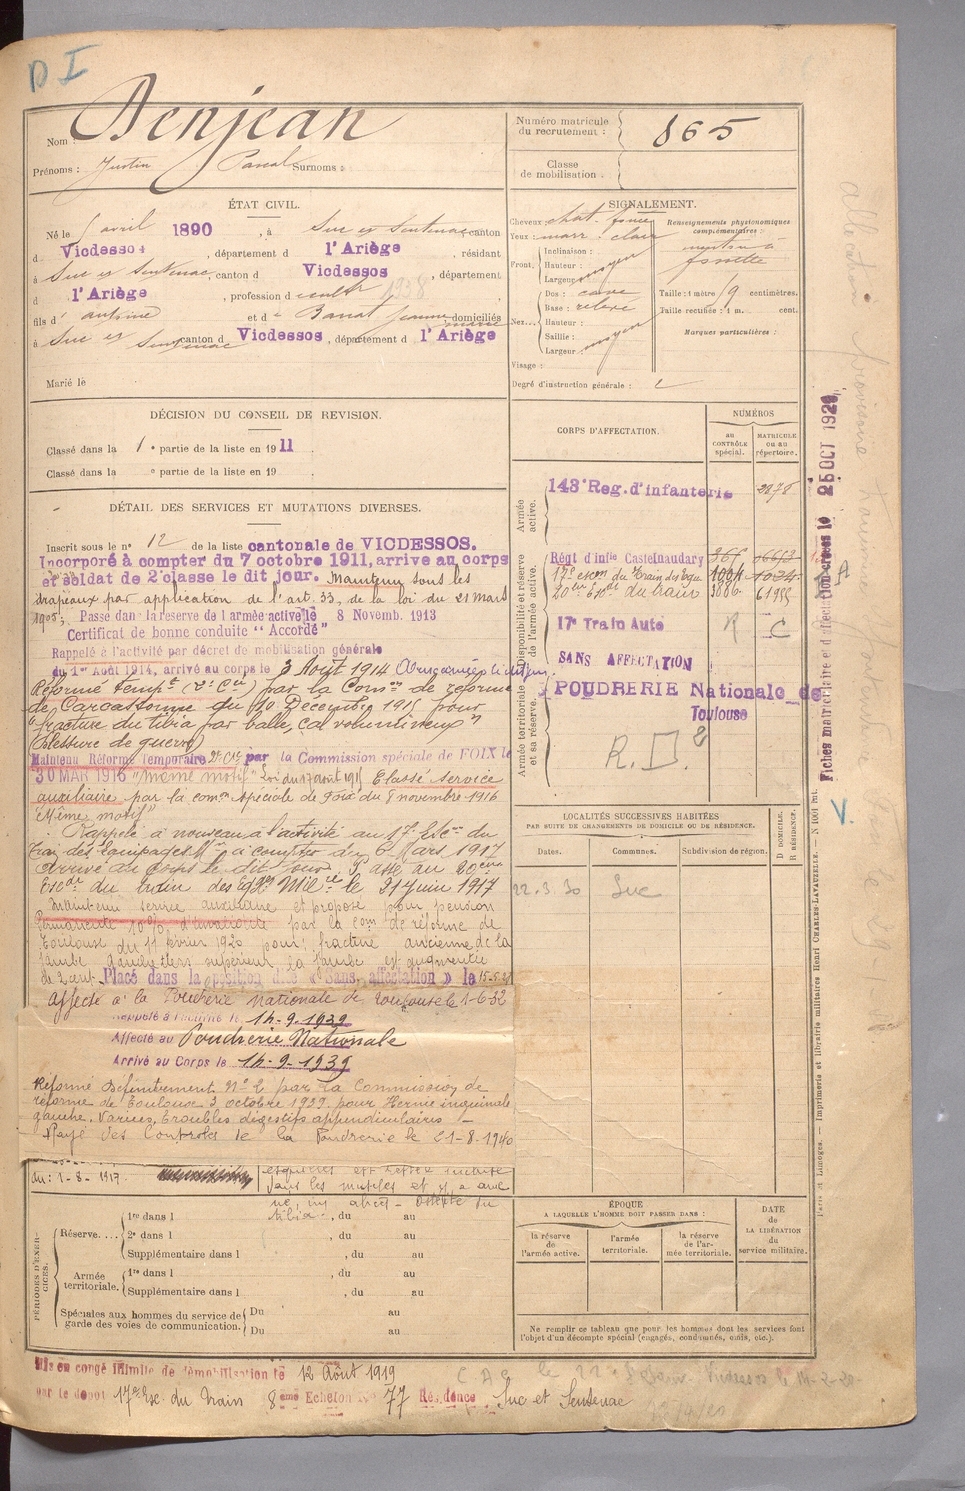 D I
Nom : Denjean
Prénoms : Justin Pascal Surnoms :
Numéro matricule du recrutement : 865
Classe de mobilisation :
ÉTAT CIVIL.
Né le 5 avril 1890, à Suc et Sentenac canton
d Vicdessos, département d l'Ariège, résidant
à Suc et Sentenac, canton d Vicdessos, département
d l'Ariège, profession d cultr 1938
fils d' antoine et d e Barrat Jeanne Marie domiciliés
à Suc et Sentenac canton d Vicdessos, département d l'Ariège
Marié le
SIGNALEMENT.
Cheveux chat. foncé
Yeux : marr. clair
Front. Inclinaison :
Hauteur :
Largeur moyen
Nez... Dos : cave
Base : relevé
Hauteur :
Saillie :
Largeur moyen
Visage :
Renseignements physionomiques complémentaires :
menton à fossette
Taille : 1 mètre 59 centimètres.
Taille rectifiée : 1 m. cent.
Marques particulières :
Degré d'instruction générale : 2
DÉCISION DU CONSEIL DE REVISION.
Classé dans la 1 e partie de la liste en 1911.
Classé dans la e partie de la liste en 19 .
DÉTAIL DES SERVICES ET MUTATIONS DIVERSES.
Inscrit sous le n° 12 de la liste cantonale de VICDESSOS.
Incorporé à compter du 7 octobre 1911, arrive au corps
et soldat de 2e classe le dit jour. Maintenu sous les
drapeaux par application de l'art. 33, de la loi du 21 Mars
1905.
Passé dans la réserve de l'armée active le 8 Novemb. 1913
Certificat de bonne conduite "Accordé"
Rappelé à l'activité par décret de mobilisation générale
du 1er Août 1914, arrivé au corps le 3 Août 1914 Aux armées le dit jour.
Réformé tempre (2e Cie) par la Comon de réforme
de Carcassonne du 10 Décembre 1915 pour
"fracture du tibia par balle, cal volumineux"
(Blessure de guerre)
Maintenu Réformé Temporaire 2e Cie par la Commission spéciale de FOIX le
30 MAR 1916 "Même motif" Loi du 17 août 1915 Classé service
auxiliaire par la comon spéciale de Foix du 8 novembre 1916
"Même motif"
Rappelé à nouveau à l'activité au 17e Escon du
Train des Equipages Mre à compter du 6 Mars 1917
Arrivé au Corps le dit jour. Passé au 20ème
Escon du train des Eqges Milres le 21 Juin 1917
Maintenu service auxiliaire et proposé pour pension
Permanente 10% d'invalidité par la com de réforme de
Toulouse du 11 février 1920 pour : fracture ancienne de la
jambe gauche tiers supérieur la jambe est augmentée
de 2 cent.
Placé dans la position dite « Sans affectation » le 15-5-31
Affecté à la Poudrerie Nationale de Toulouse le 1-6-32
Rappelé à l'activité le 14-9-1939
Affecté au Poudrerie Nationale
Arrivé au Corps le 14-9-1939
Réformé Définitivement N° 2 par la Commission de
réforme de Toulouse 3 octobre 1939 pour Hernie inguinale
gauche. Varices, troubles digestifs appendiculaires -
Rayé des Contrôles de la Poudrerie le 21-8-1940
du : 1-8-1917
esquilles est restée incluse
dans les muscles et y a ame
né un abcès - Ostéite du
tibia.
CORPS D'AFFECTATION.
NUMÉROS
au CONTRÔLE spécial.
MATRICULE ou au répertoire.
Armée active.
143e Reg. d'infanterie 2078
Disponibilité et réserve de l'armée active.
Régt d'infie Castelnaudary
17e escon du Train des Equ
20ème Escon du train 3886 6155
17e Train Auto R C
SANS AFFECTATION
Armée territoriale et sa réserve.
POUDRERIE Nationale de
Toulouse
R.D.2
LOCALITÉS SUCCESSIVES HABITÉES
PAR SUITE DE CHANGEMENTS DE DOMICILE OU DE RÉSIDENCE.
Dates. Communes. Subdivision de région. D DOMICILE. R RÉSIDENCE.
22.3.30 Suc
PÉRIODES D'EXERCICES.
Réserve....
1re dans l , du au
2e dans l , du au
Supplémentaire dans l , du au
Armée territoriale.
1re dans l , du au
Supplémentaire dans l , du au
Spéciales aux hommes du service de garde des voies de communication.
Du au
Du au
ÉPOQUE
A LAQUELLE L'HOMME DOIT PASSER DANS :
la réserve de l'armée active.
l'armée territoriale.
la réserve de l'armée territoriale.
DATE de LA LIBÉRATION du service militaire.
Ne remplir ce tableau que pour les hommes dont les services font
l'objet d'un décompte spécial (engagés, condamnés, omis, etc.).
Mis en congé illimité de démobilisation le 12 Août 1919
par le dépôt 17e Esc. du Train 8ème Echelon N° 77 Résidence Suc et Sentenac
Fiches matriculaire et d'affectation créées le 25 OCT 1929
V.
Paris et Limoges. — Imprimerie et librairie militaires Henri CHARLES-LAVAUZELLE. — N 1001 int.